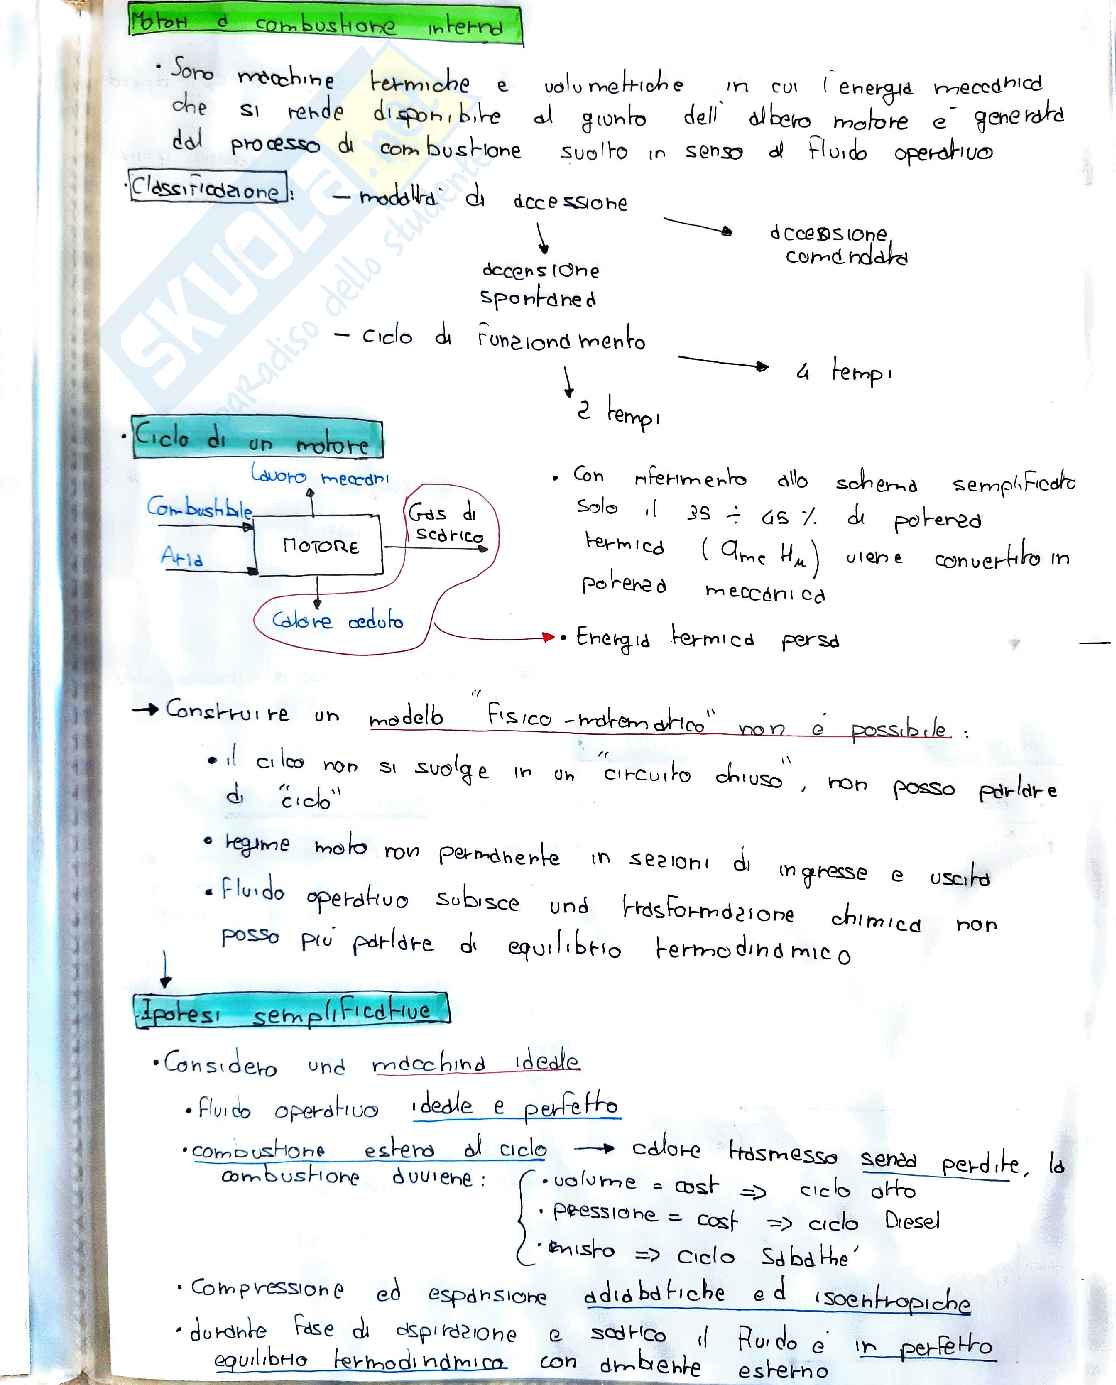 Motori a combustione interna
• Sono macchine termiche e volumetriche in cui l'energia meccanica
che si rende disponibile al giunto dell' albero motore e' generata
dal processo di combustione svolto in senso al fluido operativo
• Classificazione: - modalità di accessione
accensione comandata
accensione
spontanea
- ciclo di funzionamento
4 tempi
2 tempi
• Ciclo di un motore
Lavoro meccani
Combustibile
Aria
MOTORE
Gas di
scarico
Calore ceduto
• Con riferimento allo schema semplificato
solo il 35 ÷ 45 % di potenza
termica (qmc Hu) viene convertito in
potenza meccanica
• Energia termica persa
→ Construire un modello "fisico-matematico" non è possibile:
• il cilco non si svolge in un "circuito chiuso", non posso parlare
di "ciclo"
• regime moto non permanente in sezioni di ingresse e uscita
• fluido operativo subisce una trasformazione chimica non
posso più parlare di equilibrio termodinamico
Ipotesi semplificative
• Considero una macchina ideale
• fluido operativo ideale e perfetto
• combustione esterna al ciclo → calore trasmesso senza perdite, la
combustione avviene: • volume = cost => ciclo otto
• pressione = cost => ciclo Diesel
• misto => ciclo Sabathe'
• Compressione ed espansione adiabatiche ed isoentropiche
• durante fase di aspirazione e scarico il fluido e' in perfetto
equilibrio termodinamica con ambiente esterno
SKUOLA.net
paradiso dello studente